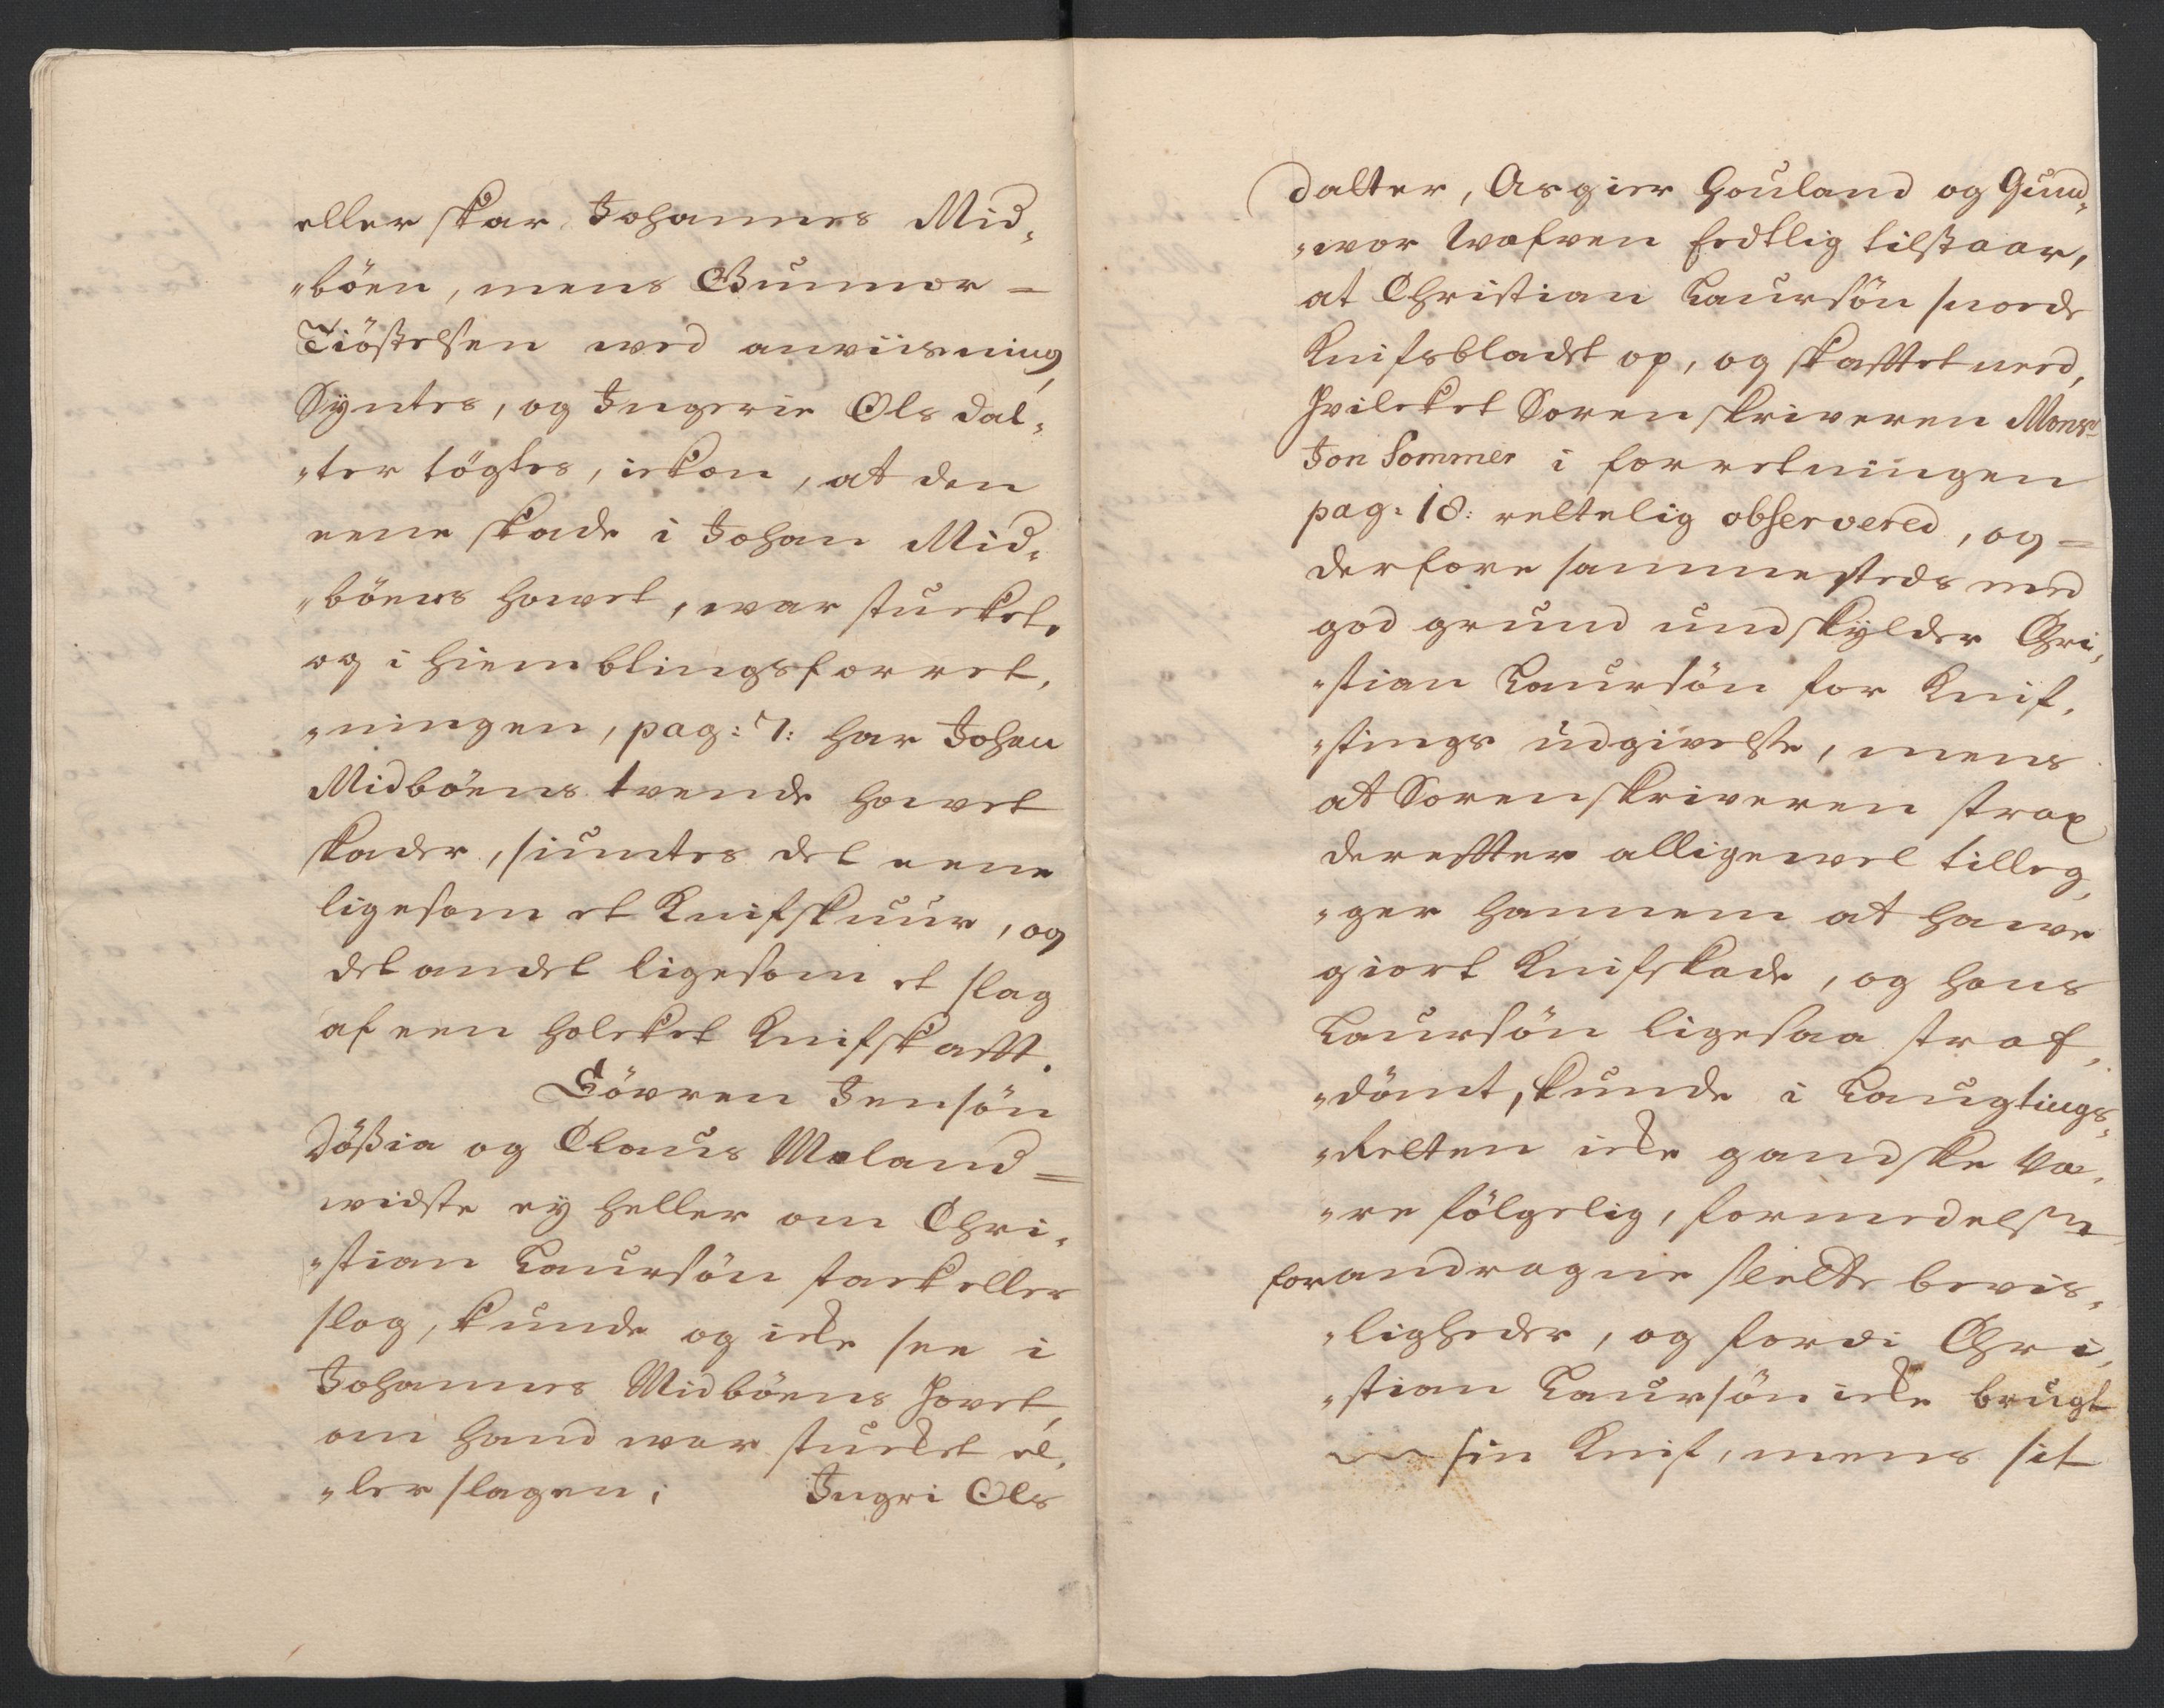 eller skar Johannes Mid,
"böen, mens Gunnor =
Tiöstelsen wed anwiisning
Syntes, og Ingerie Ols dal,
"ter tögtes, ickon, at den
eene skade i Johan Mid,
"böens howet, war stucket,
og i hiemblingsforret,
"ningen, pag: 7: har Johan
Midböens tvende howet
skader, siuntes det eene
ligesom et Knifskuur, og
det andet ligesom et slag
af een holcket Knifskafft.
Sövren Jensön
Dössia og Claus Meland =
widste ey heller om Chri,
"stian Laursön stack eller
slog, kunde og icke see i
Johannes Midböens Hovet,
om hand war stucket el,
"ler slagen; Ingri Ols
dalter, Asgier Houland og Gund,
"wor Wafwen Eedtlig tilstaar,
at Christian Laursön snoede
Knifsbladet op, og skafftet need,
Hvilcket Sorenskriveren Monsr
Jon Sommer i forretningen
pag: 18: rettelig observered, og =
derfore sammesteds med
god grund undskylder Chri,
"stian Laursön for Knif,
"stings udgivelse, mens
at Sorenskriveren strax
derefter alligewel tilleg,
"ger hannem at hawe
giort Knifskade, og hans
Laursön ligesaa straf,
"dömt, kunde i Laugtings,
"Retten icke gandske væ,
"re fölgelig, formedelst
forandragne slette bevis,
"ligheder, og fordi Chri,
"stian Laursön icke brugt
sin Knif, mens sit